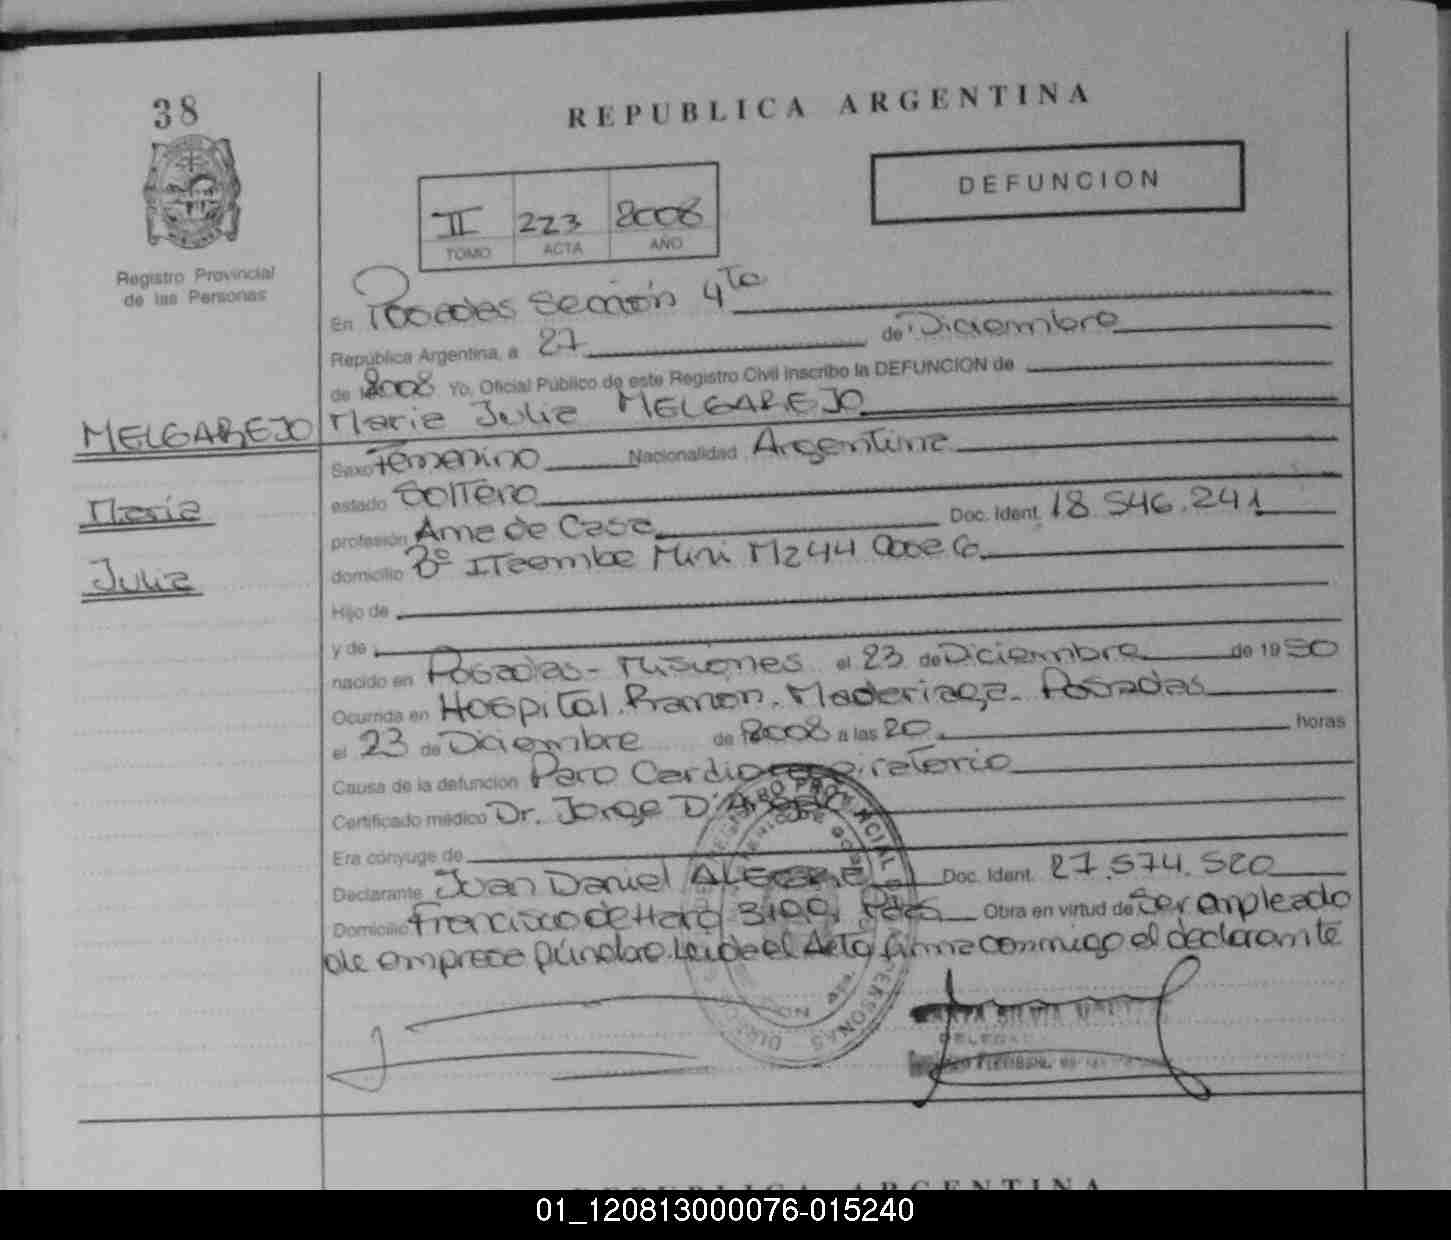 38
REPUBLICA ARGENTINA
DEFUNCION
II 223 2008
TOMO ACTA AÑO
Registro Provincial
de las Personas
En Posadas Sección 4ta
República Argentina, a 27 de Diciembre
de 2008 Yo, Oficial Público de este Registro Civil inscribo la DEFUNCION de
MELGAREJO María Julia MELGAREJO
María
Julia
Sexo Femenino Nacionalidad Argentina
estado Soltero
profesión Ama de Casa Doc. Ident. 18.546.241
domicilio Bº Itaembe Mini Mz 44 Casa 6
Hijo de
y de
nacido en Posadas - Misiones el 23 de Diciembre de 1950
Ocurrida en Hospital Ramon Madariaga - Posadas
el 23 de Diciembre de 2008 a las 20 horas
Causa de la defunción Paro Cardiorespiratorio
Certificado médico Dr. Jorge
Era cónyuge de
Declarante Juan Daniel ALEGRE Doc. Ident. 27.574.520
Domicilio Francisco de Haro 3100, Pdas Obra en virtud de Ser empleado
de empresa fúnebre. Leida el Acta firma conmigo el declarante
REPUBLICA ARGENTINA
01_120813000076-015240